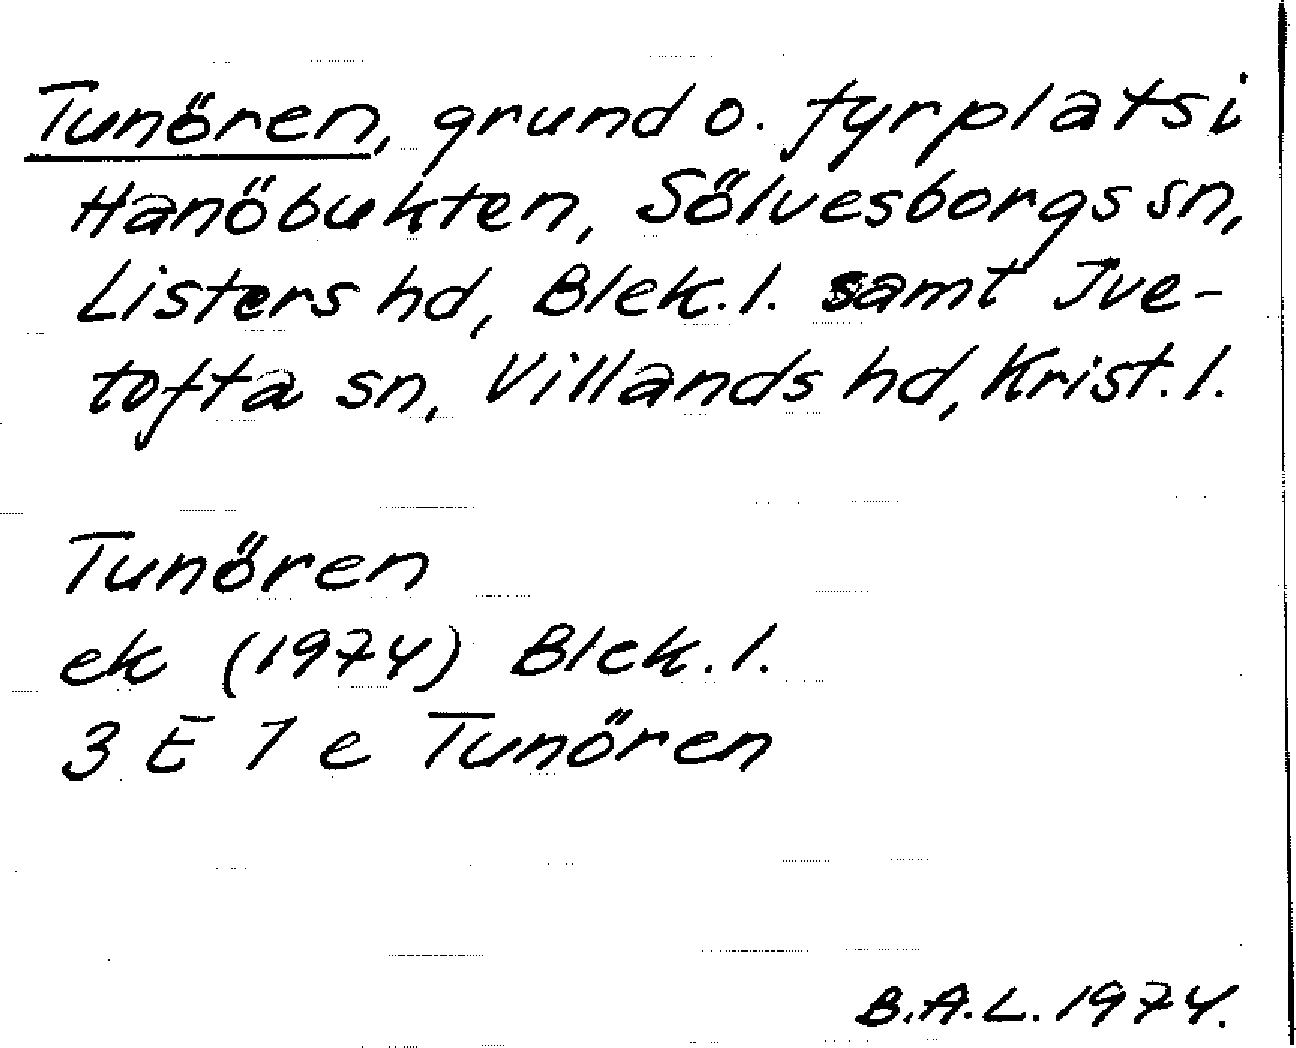 Tunören, grund o. fyrplats i
Hanöbukten, Sölvesborgs sn,
Listers hd, Blek. l. samt Ive-
tofta sn, Villands hd, Krist. l.
Tunören
ek (1974) Blek. l.
3 E 7 e Tunören
B.A.L. 1974.